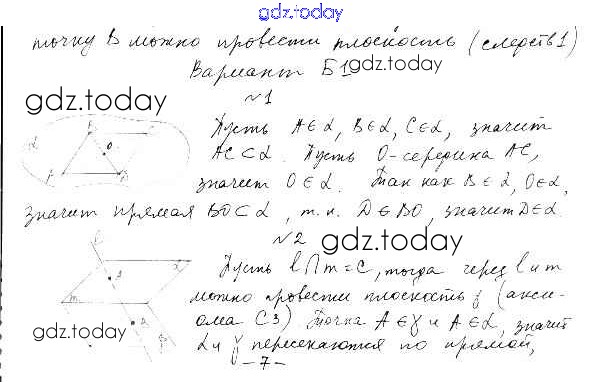 gdz.today
точку В можно провести плоскость (следств1)
Вариант Б1
gdz.today
№1
gdz.today
Пусть A∈α, B∈α, C∈α, значит
AC⊂α. Пусть O-середина AC,
значит O∈α. Так как B∈α, O∈α,
значит прямая BO⊂α, т.к. D∈BO, значит D∈α.
№2
gdz.today
Пусть l∩m=C, тогда через l и m
можно провести плоскость γ (аксио-
ома С3) Точка A∈γ и A∈α, значит
gdz.today
α и γ пересекаются по прямой,
-7-